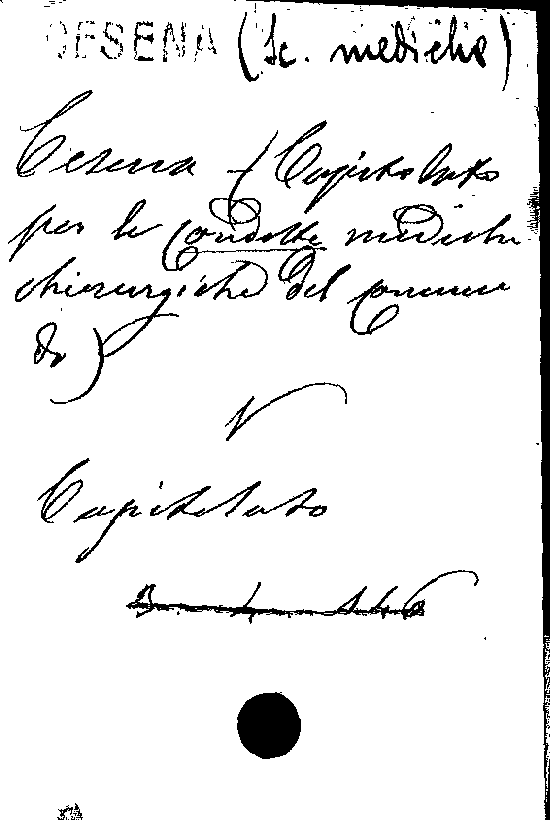 CESENA (Sc. mediche)
Cesena - (Capitolato
per le condotte mediche
chirurgiche del comune
di)
V
Capitolato
B. 4. 146